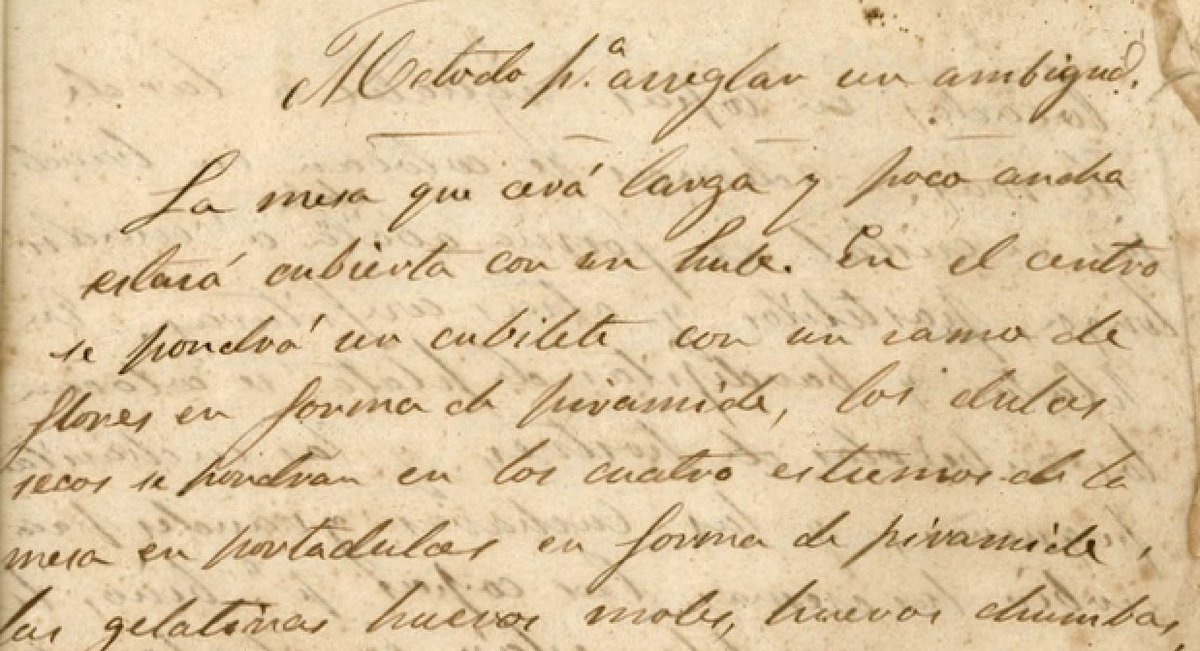 Metodo p.ª arreglar un ambigud.
La mesa que cerá larga y poco ancha
estará cubierta con un hule. En el centro
se pondrá un cubilete con un ramo de
flores en forma de piramide, los dulces
secos se pondran en los cuatro estremos de la
mesa en portadulces en forma de piramide,
las gelatinas huevos moles, huevos chumbas,